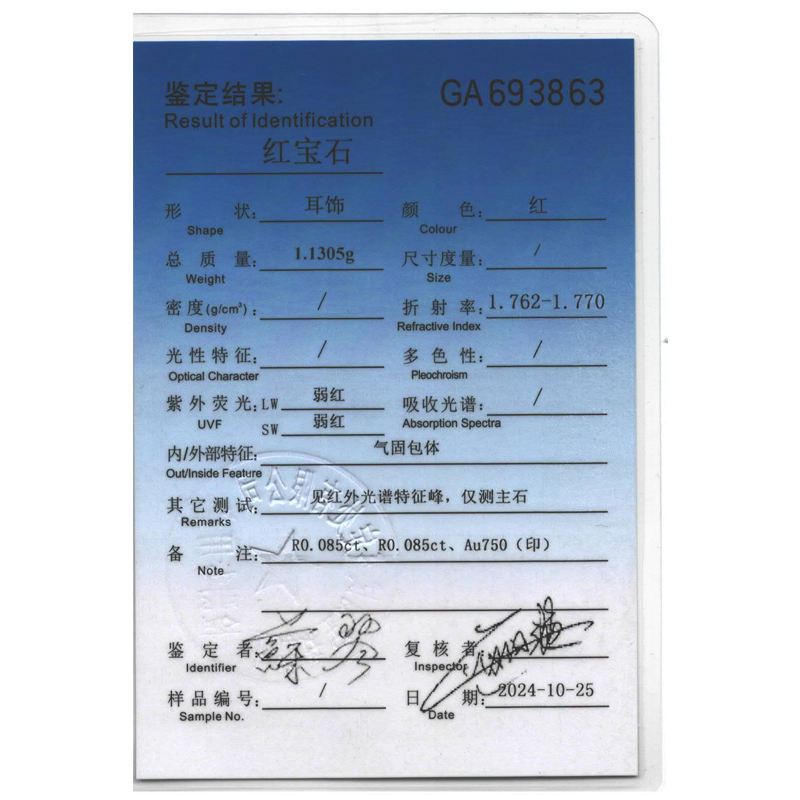 鉴定结果: GA693863
Result of Identification
红宝石
形 状: 耳饰 颜 色: 红
Shape Colour
总 质 量: 1.1305g 尺寸度量: /
Weight Size
密 度(g/cm³): / 折 射 率: 1.762-1.770
Density Refractive Index
光性特征: / 多 色 性: /
Optical Character Pleochroism
紫外荧光: LW 弱红 吸收光谱: /
UVF SW 弱红 Absorption Spectra
内/外部特征: 气固包体
Out/Inside Feature
其它测试: 见红外光谱特征峰，仅测主石
Remarks
备 注: R0.085ct、R0.085ct、Au750（印）
Note
鉴 定 者: 复 核 者:
Identifier Inspector
样品编号: / 日 期: 2024-10-25
Sample No. Date